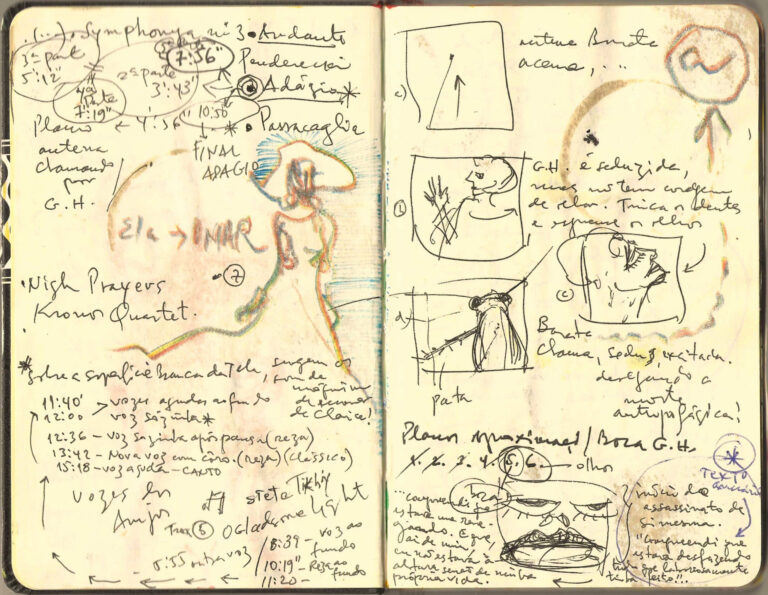 (...) Symphonya nº 3 • Andante
3ª parte
5'12"
7:56"
Penderecki
2ª parte
3'43"
4ª parte
7'19"
• Adágio *
4'56"
10:56
* • Passacaglia
FINAL
ADAGIO
Plano
antena
chamando
por
G.H.
Ela → INAR
Nigh Prayers
Kronos Quartet.
7
* Sobre a superfície branca da tela, surgem os
som da
máquina
de escrever
de Clarice!
11:40' > vozes agudas ao fundo
12:00 voz sozinha *
12:36 – voz sozinha após pausa (reza)
13:42 – Nova voz com coro. (reza) (clássico)
15:18 – voz aguda – CANTO
vozes dos
Anjos
siete
light
Trax 6
5:55 outra voz
8:39 – voz ao
fundo
10:19" – Reza ao
fundo
11:20 –
antena Barata
acena, ...
a
G.H. é seduzida,
mas não tem coragem
de olhar. Trinca os dentes
e espreme os olhos
b
c
d
Barata
chama, seduz, excitada.
desejando a
morte
antropofágica!
pata
Planos aproximaç / Boca G.H.
1. 2. 3. 4. 5. 6. – olho
Boca
*
TEXTO
"...compreendi que
estava me rene-
gando. E que,
ai de mim,
eu não estava à
altura senão de minha
própria vida.
indício do
assassinato de
si mesma.
"compreendi que
estava desfazendo
tudo que laboriosamente
tinha feito"...